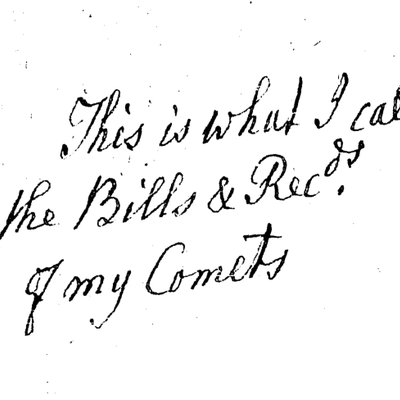 This is what I cal
the Bills & Rec.ds
of my Comets